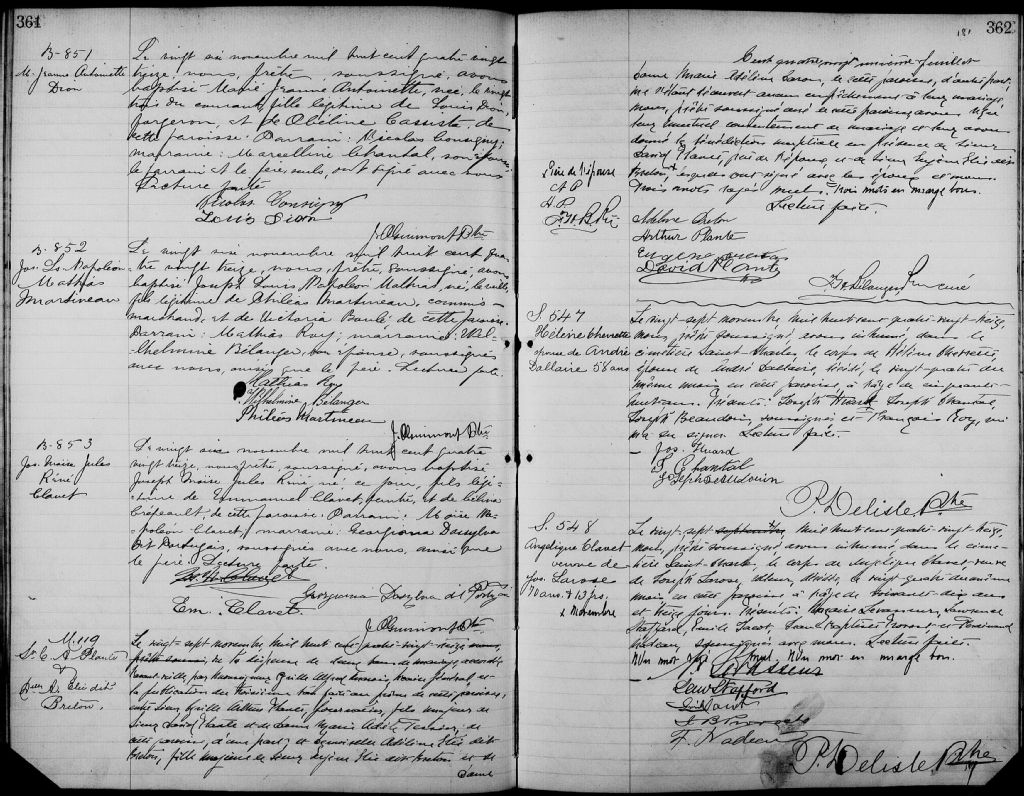 361
B-851
M. Jeanne Antoinette
Dion
Le vingt six novembre mil huit cent quatre vingt
treize, nous, prêtre soussigné, avons
baptisé Marie Jeanne Antoinette, née, le vingt
trois du courant, fille légitime de Louis Dion
forgeron, et de Obéline Cassista, de
cette paroisse. Parrain: Nicolas Consigny;
marraine: Marcelline Chantal, son épouse,
le parrain et le père, seuls, ont signé avec nous
Lecture faite
Nicolas Consigny
Louis Dion
J. O. Guimont Ptre
B-852
Jos. Ls Napoléon
Mathias
Martineau
Le vingt six novembre mil huit cent qua-
tre vingt treize, nous, prêtre, soussigné, avons
baptisé Joseph Louis Napoléon Mathias, né, la veille,
fils légitime de Philéas Martineau, commis-
marchand, et de Victoria Boulé de cette paroisse.
Parrain: Mathias Roy, marraine: Wil-
helmine Bélanger, son épouse, soussignés
avec nous, ainsi que le père. Lecture faite.
Mathias Roy
Wilhelmine Bélanger
Philéas Martineau
J. O. Guimont Ptre
B-853
Jos. Moïse Jules
Réné
Clavet
Le vingt six novembre mil huit cent quatre
vingt treize, nous prêtre, soussigné, avons baptisé
Joseph Moïse Jules Réné né ce jour, fils légi-
time de Emmanuel Clavet, peintre, et de
Crépeault, de cette paroisse. Parrain: Moïse Na-
poléon Clavet, marraine: Georgiana Dasylva
dit Portugais, soussignés avec nous, ainsi que
le père. Lecture faite.
Georgianna Dasylva dit Portugais
Em. Clavet
J. O. Guimont Ptre
M. 119
Sr C. A. Plante
&
Dlle A. Elie dit
Breton
Le vingt-sept novembre mil huit cent quatre-vingt-treize
vu la dispense de deux bans de mariage accordée
par Monseigneur Cyrille Alfred Marois, Vicaire Général et
la publication du troisième ban faite au prône de cette paroisse,
entre Sieur Cyrille Arthur Plante, fils majeur de
Sieur David Plante et de Dame Marie
cette paroisse, d'une part; et demoiselle Adéline Elie dit
Breton, fille majeure de Sieur Eugène Elie dit Breton et de
Dame
362
181
Cent quatre vingt unième feuillet
Dame Marie Adéline Caron, de cette paroisse, d'autre part;
ne s'étant découvert aucun empêchement à leur mariage,
nous, prêtre soussigné curé de cette paroisse, avons reçu
leur mutuel consentement de mariage et leur avons
donné la bénédiction nuptiale en présence de Sieur
David Plante, père de l'époux, et de Sieur Eugène Elie dit
Breton, x lesquels ont signé avec les époux et nous.
Trois mots rayés nuls. Trois mots en marge bons.
Lecture faite.
x Père de l'épouse
A P
H P
F. H. B. Ptre
Adeline Breton
Arthur Plante
Eugène
David Plante
F. H. Bélanger, Ptre curé
S. 547
Hélène Charette
épouse de André
Dallaire 58 ans
Le vingt-sept novembre mil huit cent quatre-vingt-treize,
nous, prêtre soussigné, avons inhumé dans le
cimetière Saint-Charles, le corps de Hélène Charette,
épouse de André Dallaire, décédée, le vingt-quatre du
même mois en cette paroisse, à l'âge de cinquante-
huit ans. Présents: Joseph Huard, Joseph Chantal,
Joseph Beaudoin, soussignés et François Roy, qui
n'a su signer. Lecture faite.
Jos. Huard
J. Chantal
Joseph Beaudouin
P. Delisle Ptre
S. 548
Angélique Clavet
veuve de
Jos. Larose
70 ans & 13 jrs.
x Novembre
Le vingt-sept septembre, mil huit cent quatre-vingt-treize,
nous, prêtre soussigné avons inhumé dans le cime-
tière Saint-Charles, le corps de Angélique Clavet, veuve
de Joseph Larose, décédée, le vingt-quatre du même
mois en cette paroisse à l'âge de soixante-dix ans
et treize jours. Présents: Vasseur, Lawrence
Stafford, Emile Jacot, Jean-Baptiste Provost et Ferdinand
Nadeau, soussignés avec nous. Lecture faite.
Un mot rayé nul. Un mot en marge bon.
Law Stafford
J B Provost
F. Nadeau
P. Delisle Ptre